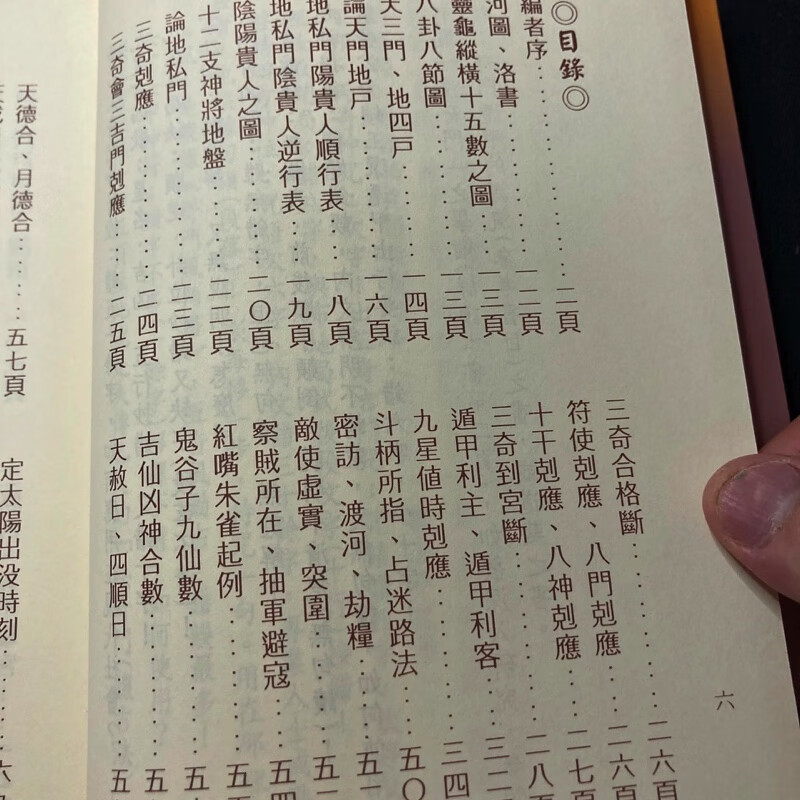 ◎目錄◎
編者序：．．．．．．．．．．二頁
河圖、洛書．．．．．．．．．一二頁
靈龜縱橫十五數之圖．．．．一三頁
八卦八節圖．．．．．．．．．一三頁
天三門、地四戶．．．．．．．一四頁
論天門地戶．．．．．．．．．一六頁
地私門陽貴人順行表．．．．一八頁
地私門陰貴人逆行表．．．．一九頁
陰陽貴人之圖．．．．．．．．二〇頁
十二支神將地盤．．．．．．．二二頁
論地私門．．．．．．．．．．二三頁
三奇剋應．．．．．．．．．．二四頁
三奇會三吉門剋應．．．．．．二五頁
三奇合格斷．．．．．．．．．二六頁
符使剋應、八門剋應．．．．二六頁
十干剋應、八神剋應．．．．二七頁
三奇到宮斷．．．．．．．．．二八頁
遁甲利主、遁甲利客．．．．三二
九星值時剋應．．．．．．．．三四
斗柄所指、占迷路法．．．．五〇
密訪、渡河、劫糧．．．．．．五一
敵使虛實、突圍．．．．．．．五
察賊所在、抽軍避寇．．．．五四
紅嘴朱雀起例．．．．．．．．五
鬼谷子九仙數．．．．．．．．五
吉仙凶神合數．．．．．．．．五
天赦日、四順日．．．．．．．五
六
天德合、月德合．．．．．五七頁
定太陽出没時刻．．．．．六